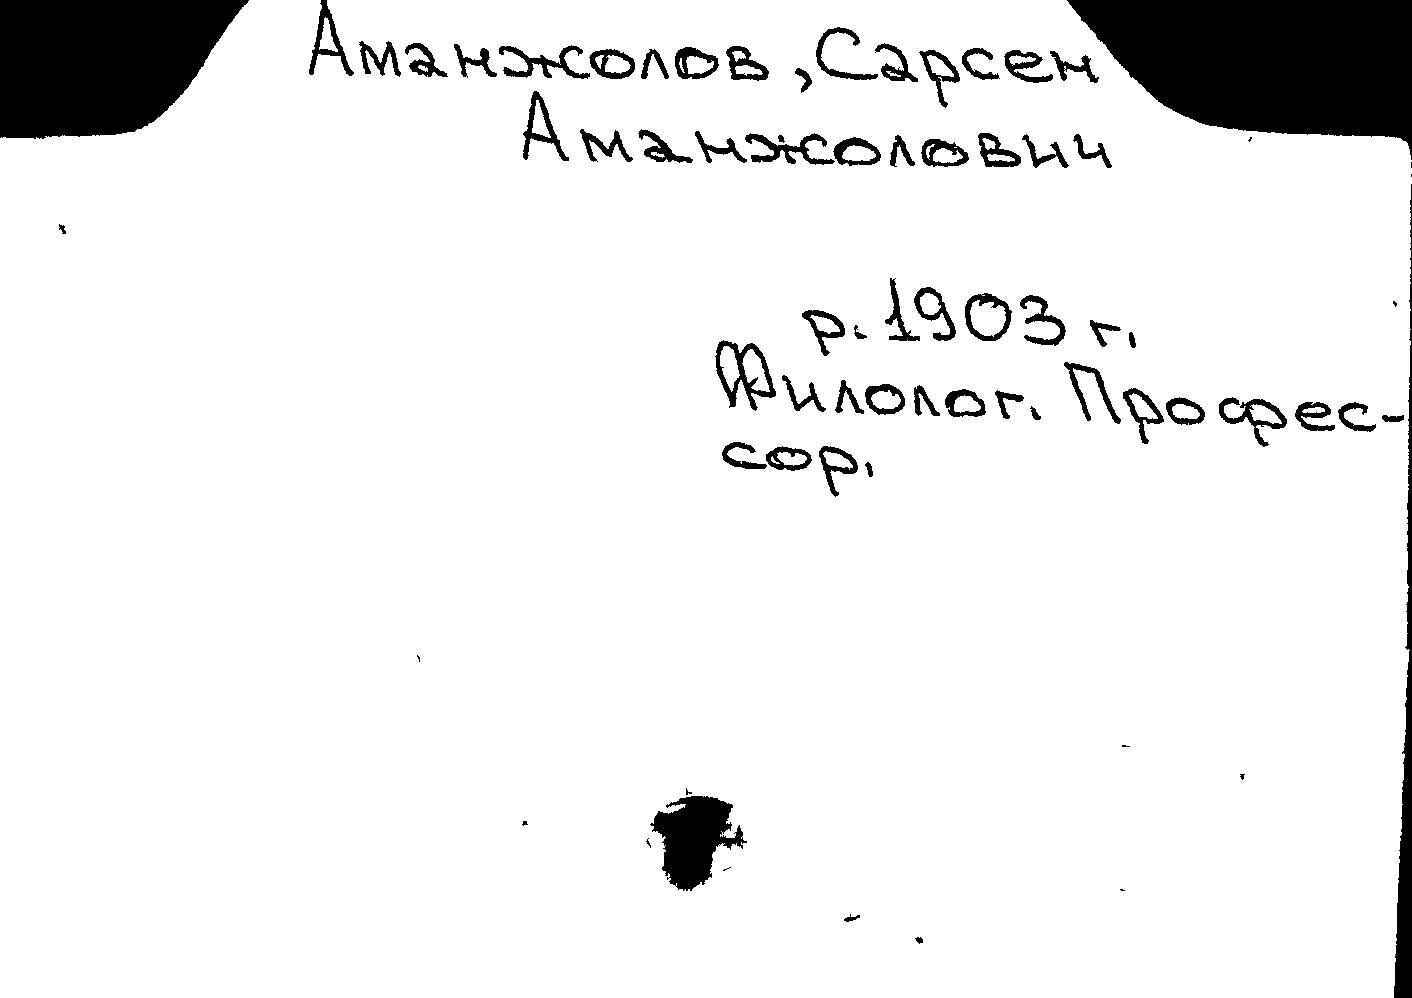 Аманжолов, Сарсен
Аманжолович
р. 1903 г.
Филолог. Профес-
сор.